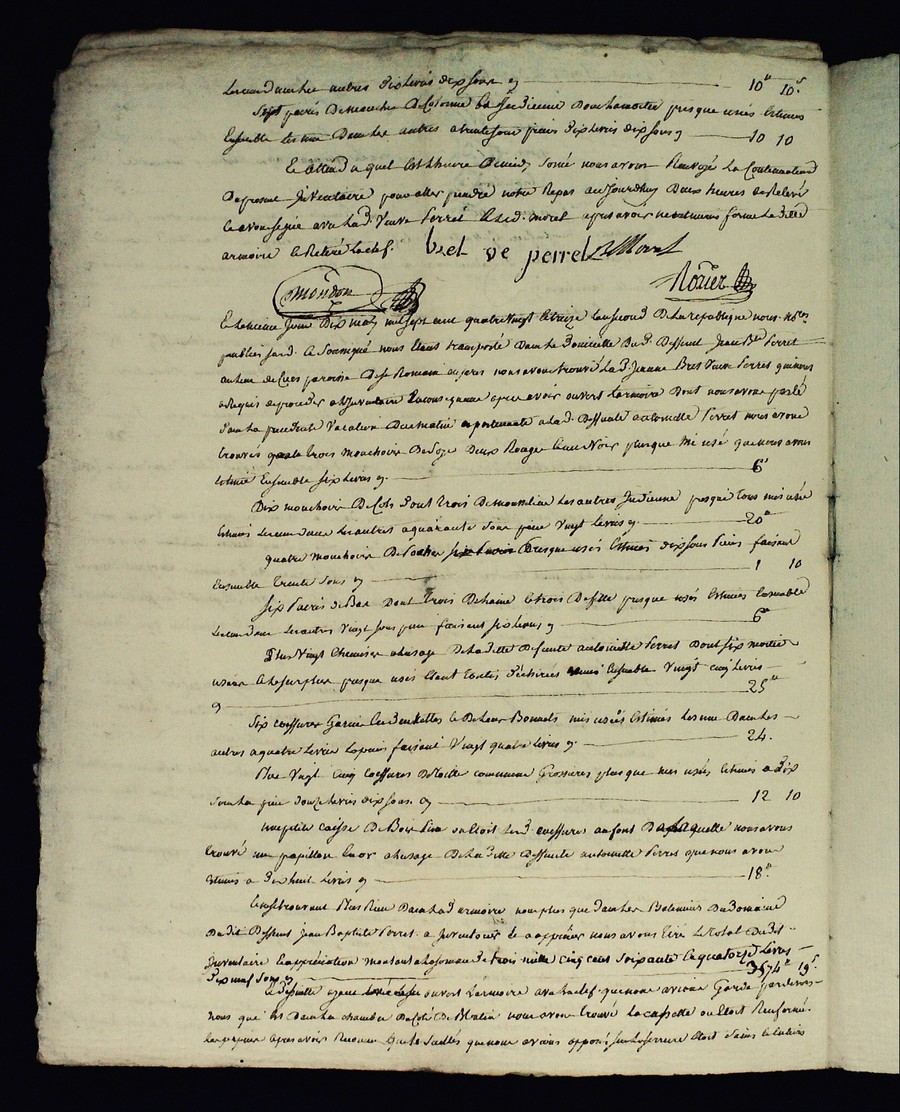 Les uns dans les autres dix livres dix sous 10ᵗᵗ 10ˢ
Sept paires De manches De Cotonne bas Indienne presque usés Estimés
Ensemble les uns Dans les autres a trente sous paire Dix livres dix sous 10 10
Et attendu quel est l'heure De midy sonné nous avons Renvoyé La Continuation
Du présent Inventaire pour aller prendre notre Repas aujourdhuy Deux heures de Relevé
et avons signé avec lad. Veuve Perret et led. morel apres avoir referme La ditte
armoire et Retiré La clef. bret ve perret Morel
Mondon Rovier
Et advenant Jour Dix may mil sept cent quatre vingt treize l'an second De la republique nous not.res
publics sard. et Soussigné nous étant transporté Dans Le Domicille dud. Deffunt Jean Bte Perret
au lieu de paroisse De St Romain nous avons trouvé La d. Jeanne Bret Veuve Perret qui nous
a Requis de proceder a l'Inventaire apres avoir ouvert L'armoire Dont nous avons parlé
Dans La precedente Vacation Du matin apartenante a la d. Deffunte antoinette Perret nous avons
trouvés trois mouchoirs De Soye Deux Rouge et un Noir presque Mi usé que nous avons
estimé Ensemble six Livres 6ᵗᵗ
Dix mouchoirs De Col Dont trois De mousseline Les autres Indienne presque tous mis usés
Estimés Les uns dans Les autres a quarante Sous piece Vingt Livres 20ᵗᵗ
quatre mouchoirs De Poche Presque usés Estimés dix sous piece faisant
Ensemble Trente Sous 1 10
Six Paires de Bas Dont trois De laine et trois De fille presque usés Estimés Ensemble
Les uns dans Les autres Vingt sous paire faisant six Livres 6ᵗᵗ
Plus Vingt Chemises a l'usage De la ditte Defunte antoinette Perret Dont six moitié
usées et Le surplus presque usés Etant toutes Déchirées Ensemble Vingt cinq Livres
25ᵗᵗ
Six coeffures Garnie en Dentelles et De Leurs Bonnets mis usées Estimées Les uns Dans Les
autres a quatre Livres La piece faisant Vingt quatre Livres 24.
Plus Vingt Cinq Coeffures De toile commune Grossieres presque mis usés Estimés a Dix
Sous La piece Douze Livres dix sous. 12 10
une petite Caisse De Bois Sapin ou Etoit Lesd. coeffures au font De laquelle nous avons
trouvé un papillon En or a l'usage De La ditte Deffunte antoinette Perret que nous avons
Estimés a Dix huit Livres 18ᵗᵗ.
Et ne se trouvant Plus Rien Dans La d. armoire non plus que dans Les Batiments Du Domaine
Dudit Deffunt Jean Baptiste Perret a Inventorier et a apprécier nous avons tiré Le total Dudit
Inventaire et appréciation montant a La somme de trois mille cinq cent soixante et quatorze Livres
Dix neuf Sous 3574ᵗᵗ 19ˢ.
ouvert L'armoire avec La clef que nous avions Gardé par devers
nous qui est Dans La chambre Du Coté De Matin nous avons trouvé La cassette ou Etoit Renfermé
Les papiers apres avoir Reconnu que Le Scellés que nous avions apposé sur La serrure étoit Sains et Entiers